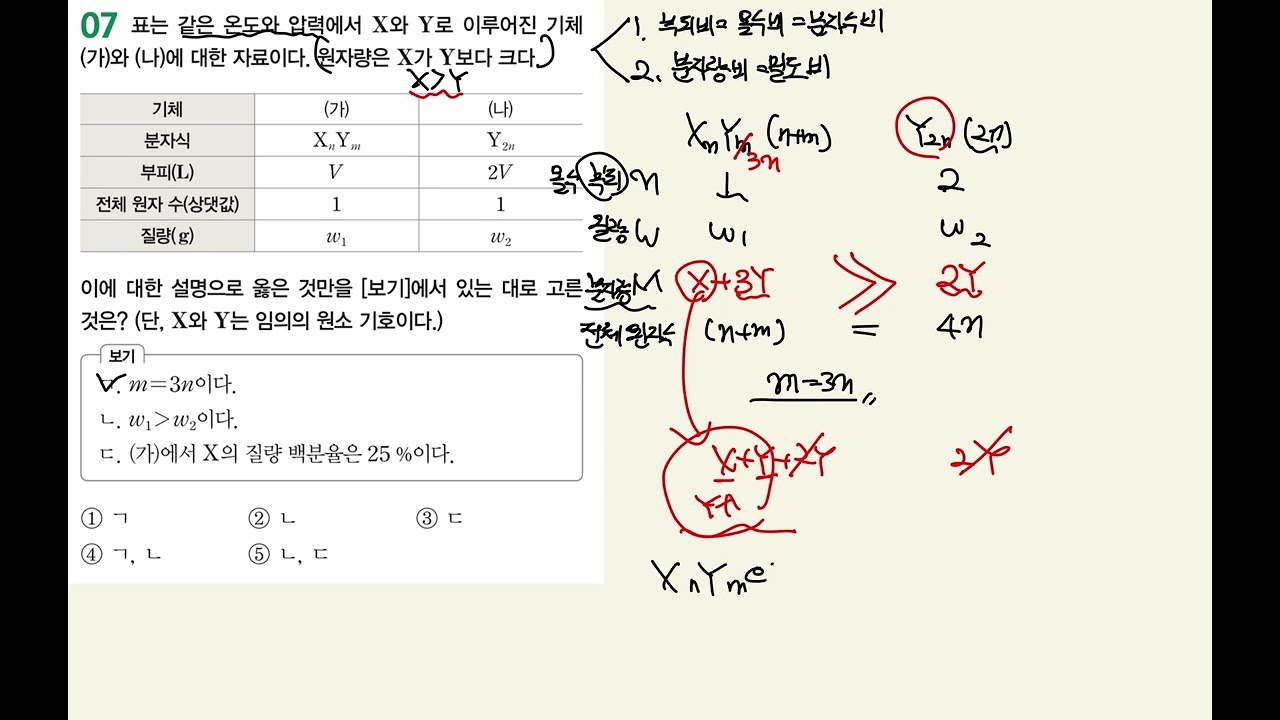 07 표는 같은 온도와 압력에서 X와 Y로 이루어진 기체
(가)와 (나)에 대한 자료이다. (원자량은 X가 Y보다 크다.)
X>Y
기체 (가) (나)
분자식 XₙYₘ Y₂ₙ
부피(L) V 2V
전체 원자 수(상댓값) 1 1
질량(g) w₁ w₂
이에 대한 설명으로 옳은 것만을 [보기]에서 있는 대로 고른
것은? (단, X와 Y는 임의의 원소 기호이다.)
보기
ㄱ. m=3n이다.
ㄴ. w₁>w₂이다.
ㄷ. (가)에서 X의 질량 백분율은 25 %이다.
① ㄱ ② ㄴ ③ ㄷ
④ ㄱ, ㄴ ⑤ ㄴ, ㄷ
1. 부피비=몰수비=분자수비
2. 분자량비=밀도비
XₙYₘ (n+m) Y₂ₙ (2n)
3n
몰수 부피 n 1 2
질량 w w₁ w₂
분자량 M X+3Y > 2Y
전체 원자수 (n+m) = 4n
m=3n
X+Y+2Y 2Y
XₙYₘ